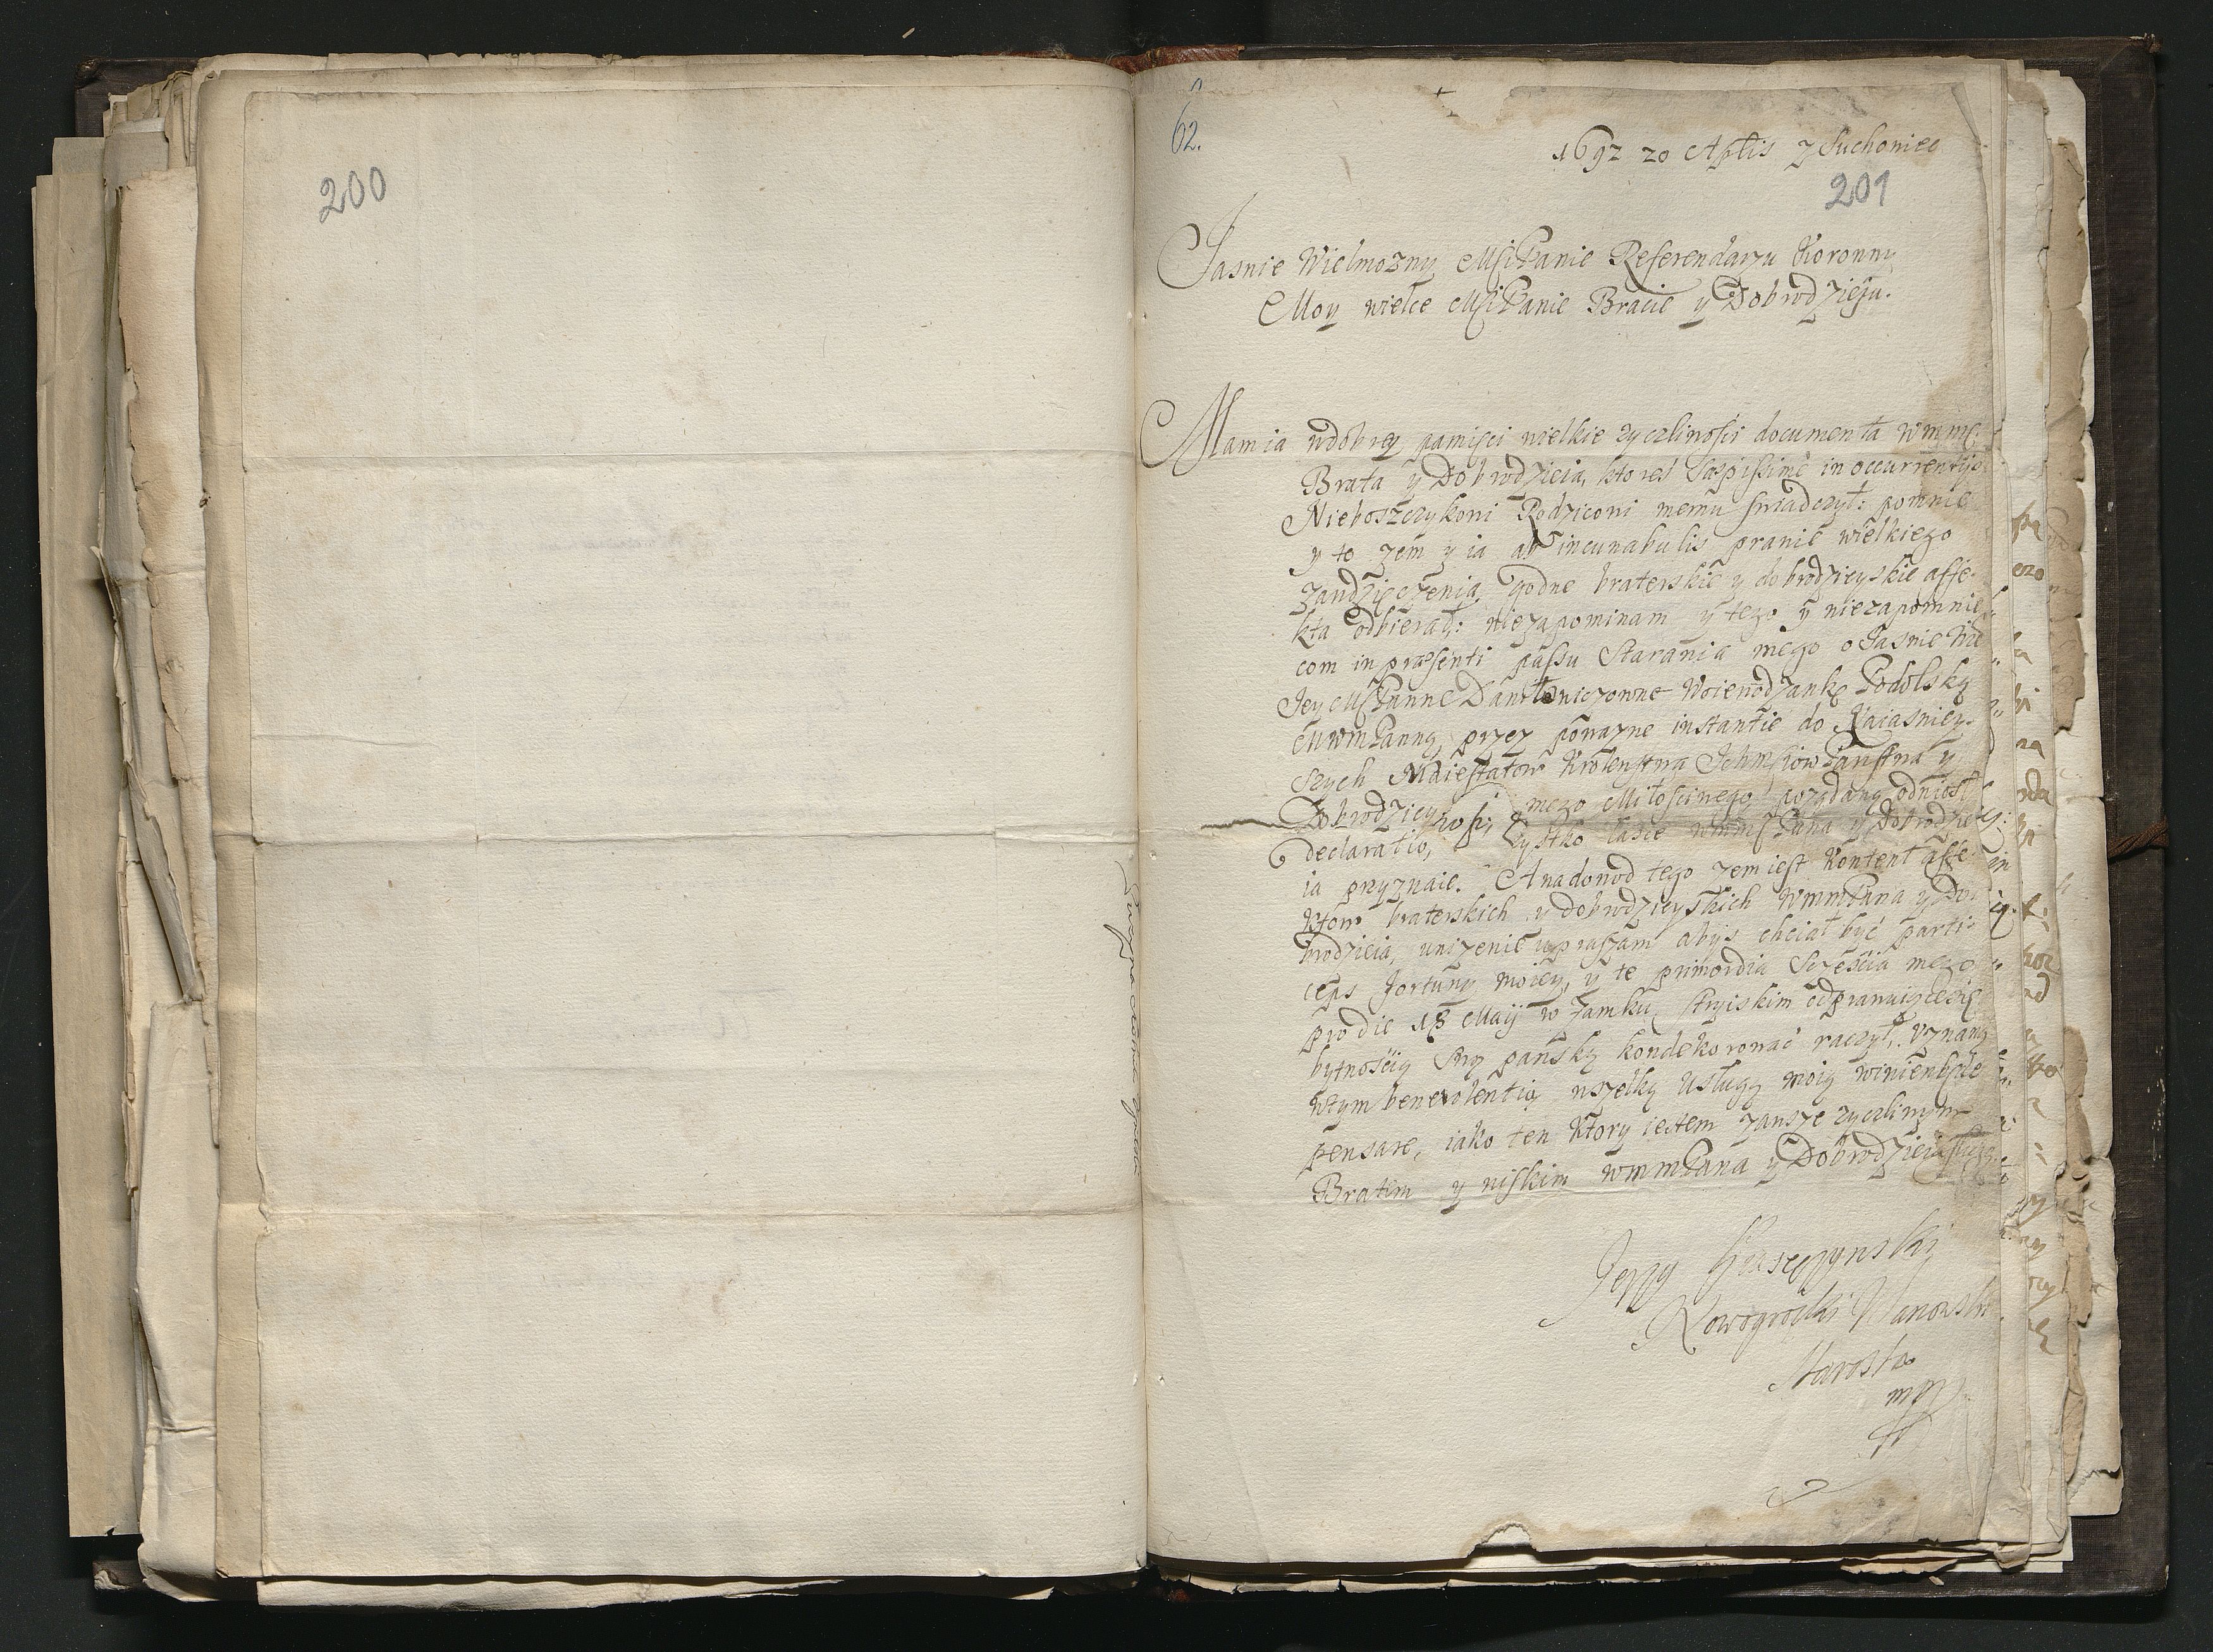 200
62.
1692 20 Aplis z Suchoniec
201
Jasnie Wielmozny MsciPanie Referendarzu Koronny
Moy wielce MsciPanie Bracie y Dobrodzieju.
Mam ia wdobrey pamięci wielkie zyczliwosci documenta wmms:
Brata y Dobrodzieia, ktoreś Saepissime in occurrentijs
Nieboszczykowi Rodzicowi memu swiadczył: pomnie
y to zem y ia ab incunabulis prawie wielkiego
zawdzięczenia godne braterskie y dobrodzieyskie affe-
kta odbierał: niezapominam y tego y niezapomnię
com in praesenti passu Starania mego o Jasnie
Jey MsPanne Daniłowiczowne Woiewodzankę Podolską
przez powazne instantie do Naiasniey-
szych Maiestatow Krolewstwa Ichmsciow Panstwa y
Dobrodzieystwa mego Miłosciwego pozadaną odniosł
declaratio, łasce wmmsPana y Dobrodzie
ia przyznaie. A nadowod tego zem iest kontent affe
ktow braterskich y dobrodzieyskich WmmPana y Do
brodzieia, unizenie upraszam abys chciał być parti-
ceps fortuny moiey, y te primordia Szczęścia mego
pro die 18 Maij w zamku stryiskim odprawuiącesię
bytnością Swą pańską kondekorować raczył. Uznaną
wtym benevolentią wszelką usługą moią winienbęde
pensare, iako ten ktory iestem zawsze zyczliwym
Bratem y niskim wmmPana y Dobrodzieia sługą
Jerzy
Nowogrodzki
Starosta
mp